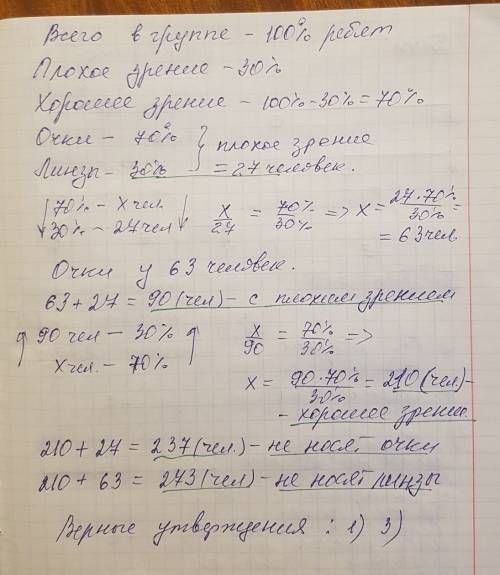 Всего в группе - 100% ребят
Плохое зрение - 30%
Хорошее зрение - 100% - 30% = 70%
Очки - 70% } плохое зрение
Линзы - 30% = 27 человек.
↓ 70% - x чел ↓ x/27 = 70%/30% => x = 27·70%/30% =
30% - 27 чел = 63 чел
Очки у 63 человек.
63 + 27 = 90 (чел) - с плохим зрением
↑ 90 чел - 30% ↑ x/90 = 70%/30% =>
x чел. - 70%
x = 90·70%/30% = 210 (чел) -
- хорошее зрение
210 + 27 = 237 (чел.) - не носят очки
210 + 63 = 273 (чел) - не носят линзы
Верные утверждения : 1) 3)